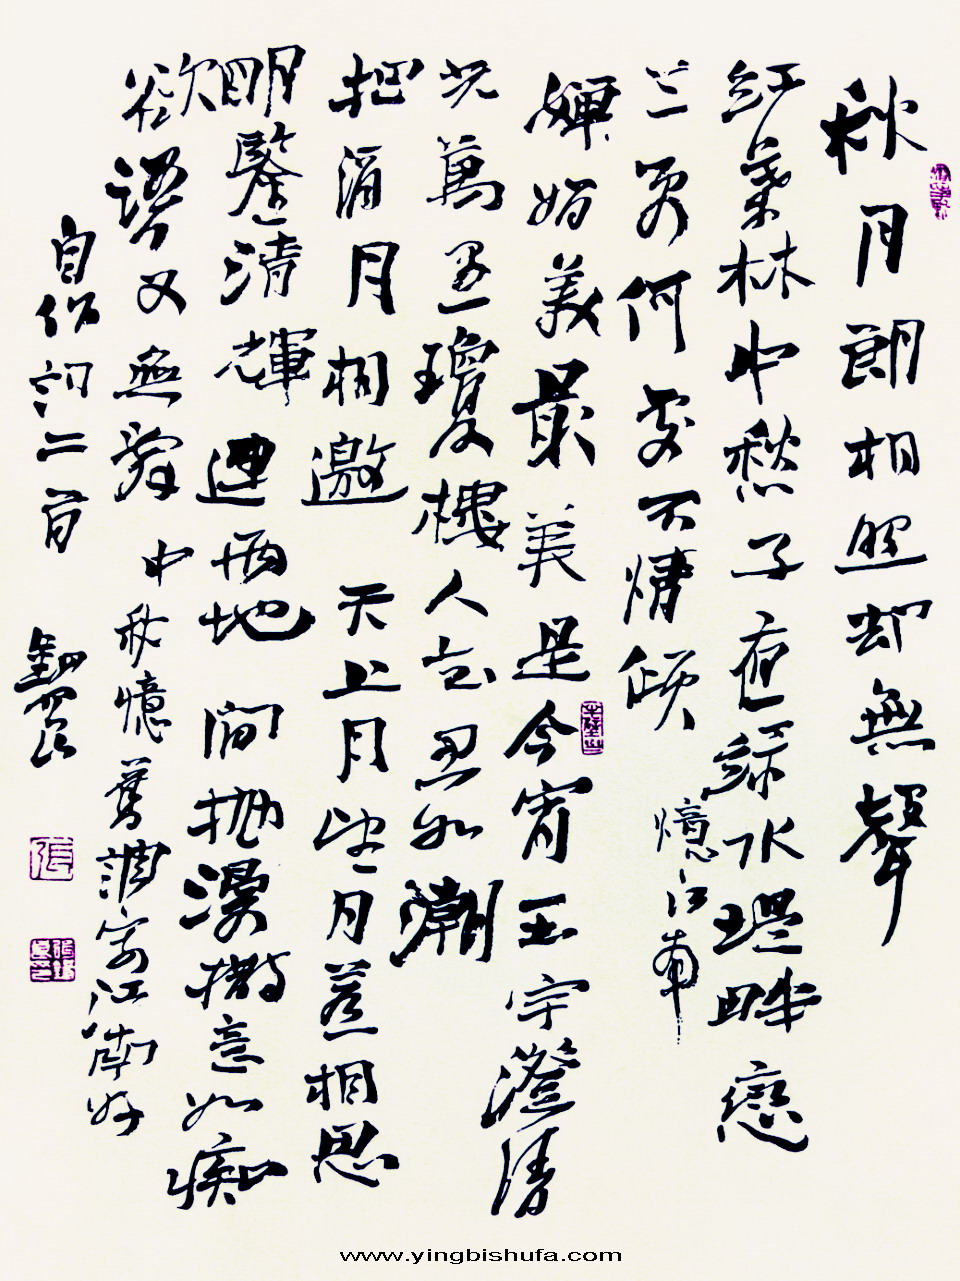 秋月朗相照却無聲
紅葉林中愁子夜綠水堤畔戀
兰亭何處不情傾 憶江南
嬋娟美最美是今宵玉宇澄清
光萬里瓊樓人立思如潮
把酒月相邀 天上月望月惹相思
明鑒清輝連兩地 間拋漫撒意如痴
欲語又無辭 中秋憶舊調寄江南好
自作詞二首
www.yingbishufa.com